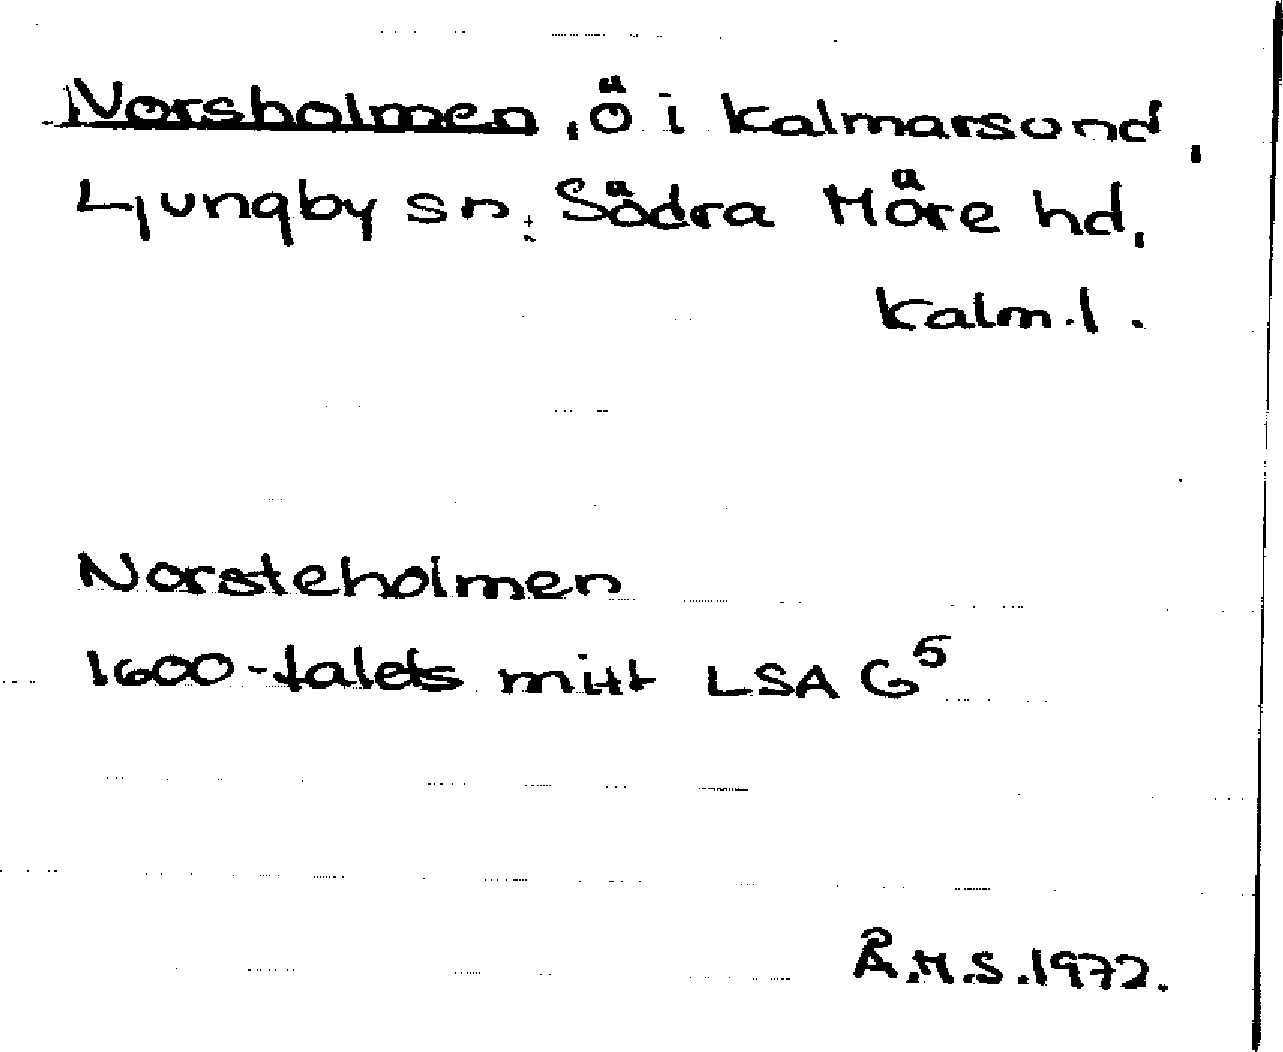 Norsholmen, ö i Kalmarsund,
Ljungby sn, Södra Möre hd,
Kalm.l.
Norsteholmen
1600-talets mitt LSA G5
Å.M.S.1972.